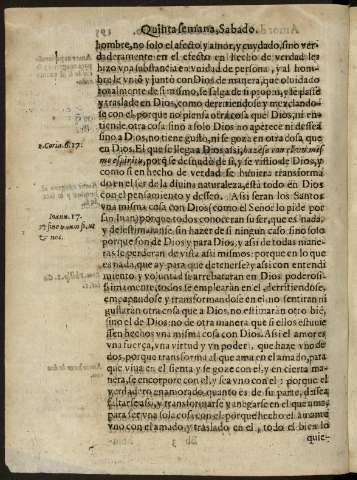 Quinta semana, Sabado.
hombre, no solo el afecto y amor, y cuydado, sino ver-
daderamente en el efecto en hecho de verdad les
hizo vna substancia e vnidad de persona, y al hom-
bre le vnio y junto con Dios de manera, que oluidado
totalmente de si mismo, se salga de si propio, y se passe
y traslade en Dios, como derritiendose y mezclando-
se con el, porque no piensa otra cosa que Dios, ni en-
tiende otra cosa sino a solo Dios no apetece ni dessea
sino a Dios, no tiene gusto, ni se goza en otra cosa, que
en Dios. El que se llega a Dios assi, hazese vn mis-
mo espiritu, porq̃ se desnudò de si, y se vistio de Dios, y
2. Corin. 6. 17.
como si en hecho de verdad se huuiera transforma
do en el ser de la diuina naturaleza, està todo en Dios
con el pensamiento y desseo. Assi seran los Santos
vna misma cosa con Dios como el Señor lo pide por
san Iuan, porque todos conoceran su ser, que es nada,
Ioann. 17.
y desestimarse, sin hazer de si ningun caso, sino solo
porque son de Dios y para Dios, y assi de todas mane-
ras se perderan de vista assi mismos: porque en lo que
es nada, que ay para que detenerse? y assi con entendi
miento y voluntad se arrebataran en Dios poderosi-
simamente, todos se emplearan en el, derritiendose,
empapandose y transformandose en el no sentiran ni
gustaran otra cosa que a Dios, no estimaran otro bie,
sino el de Dios: no de otra manera que si ellos estuuie
ssen hechos vna misma cosa con Dios. Assi el amor es
vna fuerça, vna virtud y vn poder, que haze vno de
dos, porque transforma al que ama en el amado, para
que viua en el sienta y se goze con el, y en cierta ma-
nera, se encorpore con el, y sea vno con el: porque el
verdadero enamorado, quanto es de su parte, dessea
faltarse assi, y transformarse y anegarse en el que ama,
para ser vna sola cosa con el, porque hecho el amante
vno con el amado, y traslado en el, todo el bien lo
quie-